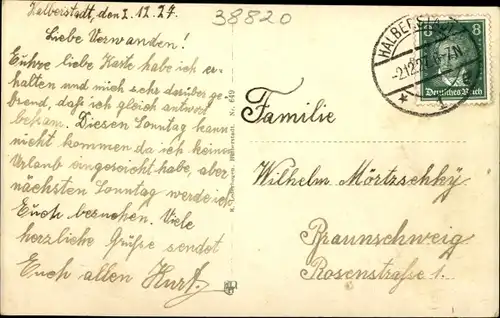 Halberstadt, den 1.12.27.
38820
Liebe Verwanden!
Euhre liebe Karte habe ich er-
halten und mich sehr darüber ge-
freud, daß ich gleich antwort
bekam. Diesen Sonntag kann
nicht kommen da ich keine
Urlaub eingereicht habe, aber
nächsten Sonntag werde ich
Euch besuchen. Viele
herzliche Grüße sendet
Euch allen Kurt.
Halberstadt. Nr. 649
HALBERSTADT
-2.12.27.
* 1
8 8
Deutsches Reich
Familie
Wilhelm Mörtzschky
Braunschweig
Rosenstraße 1.